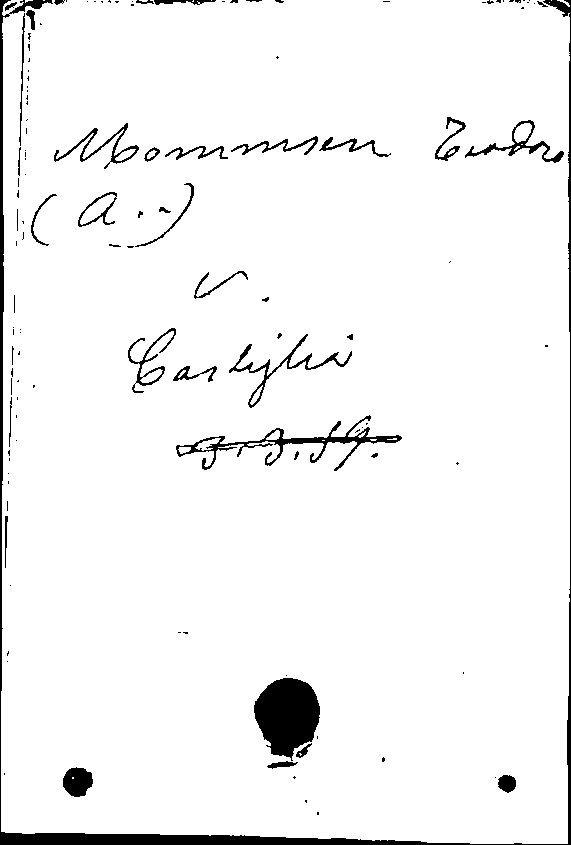 Mommsen Teodoro
(A...)
v.
Castiglia
3.3.59.